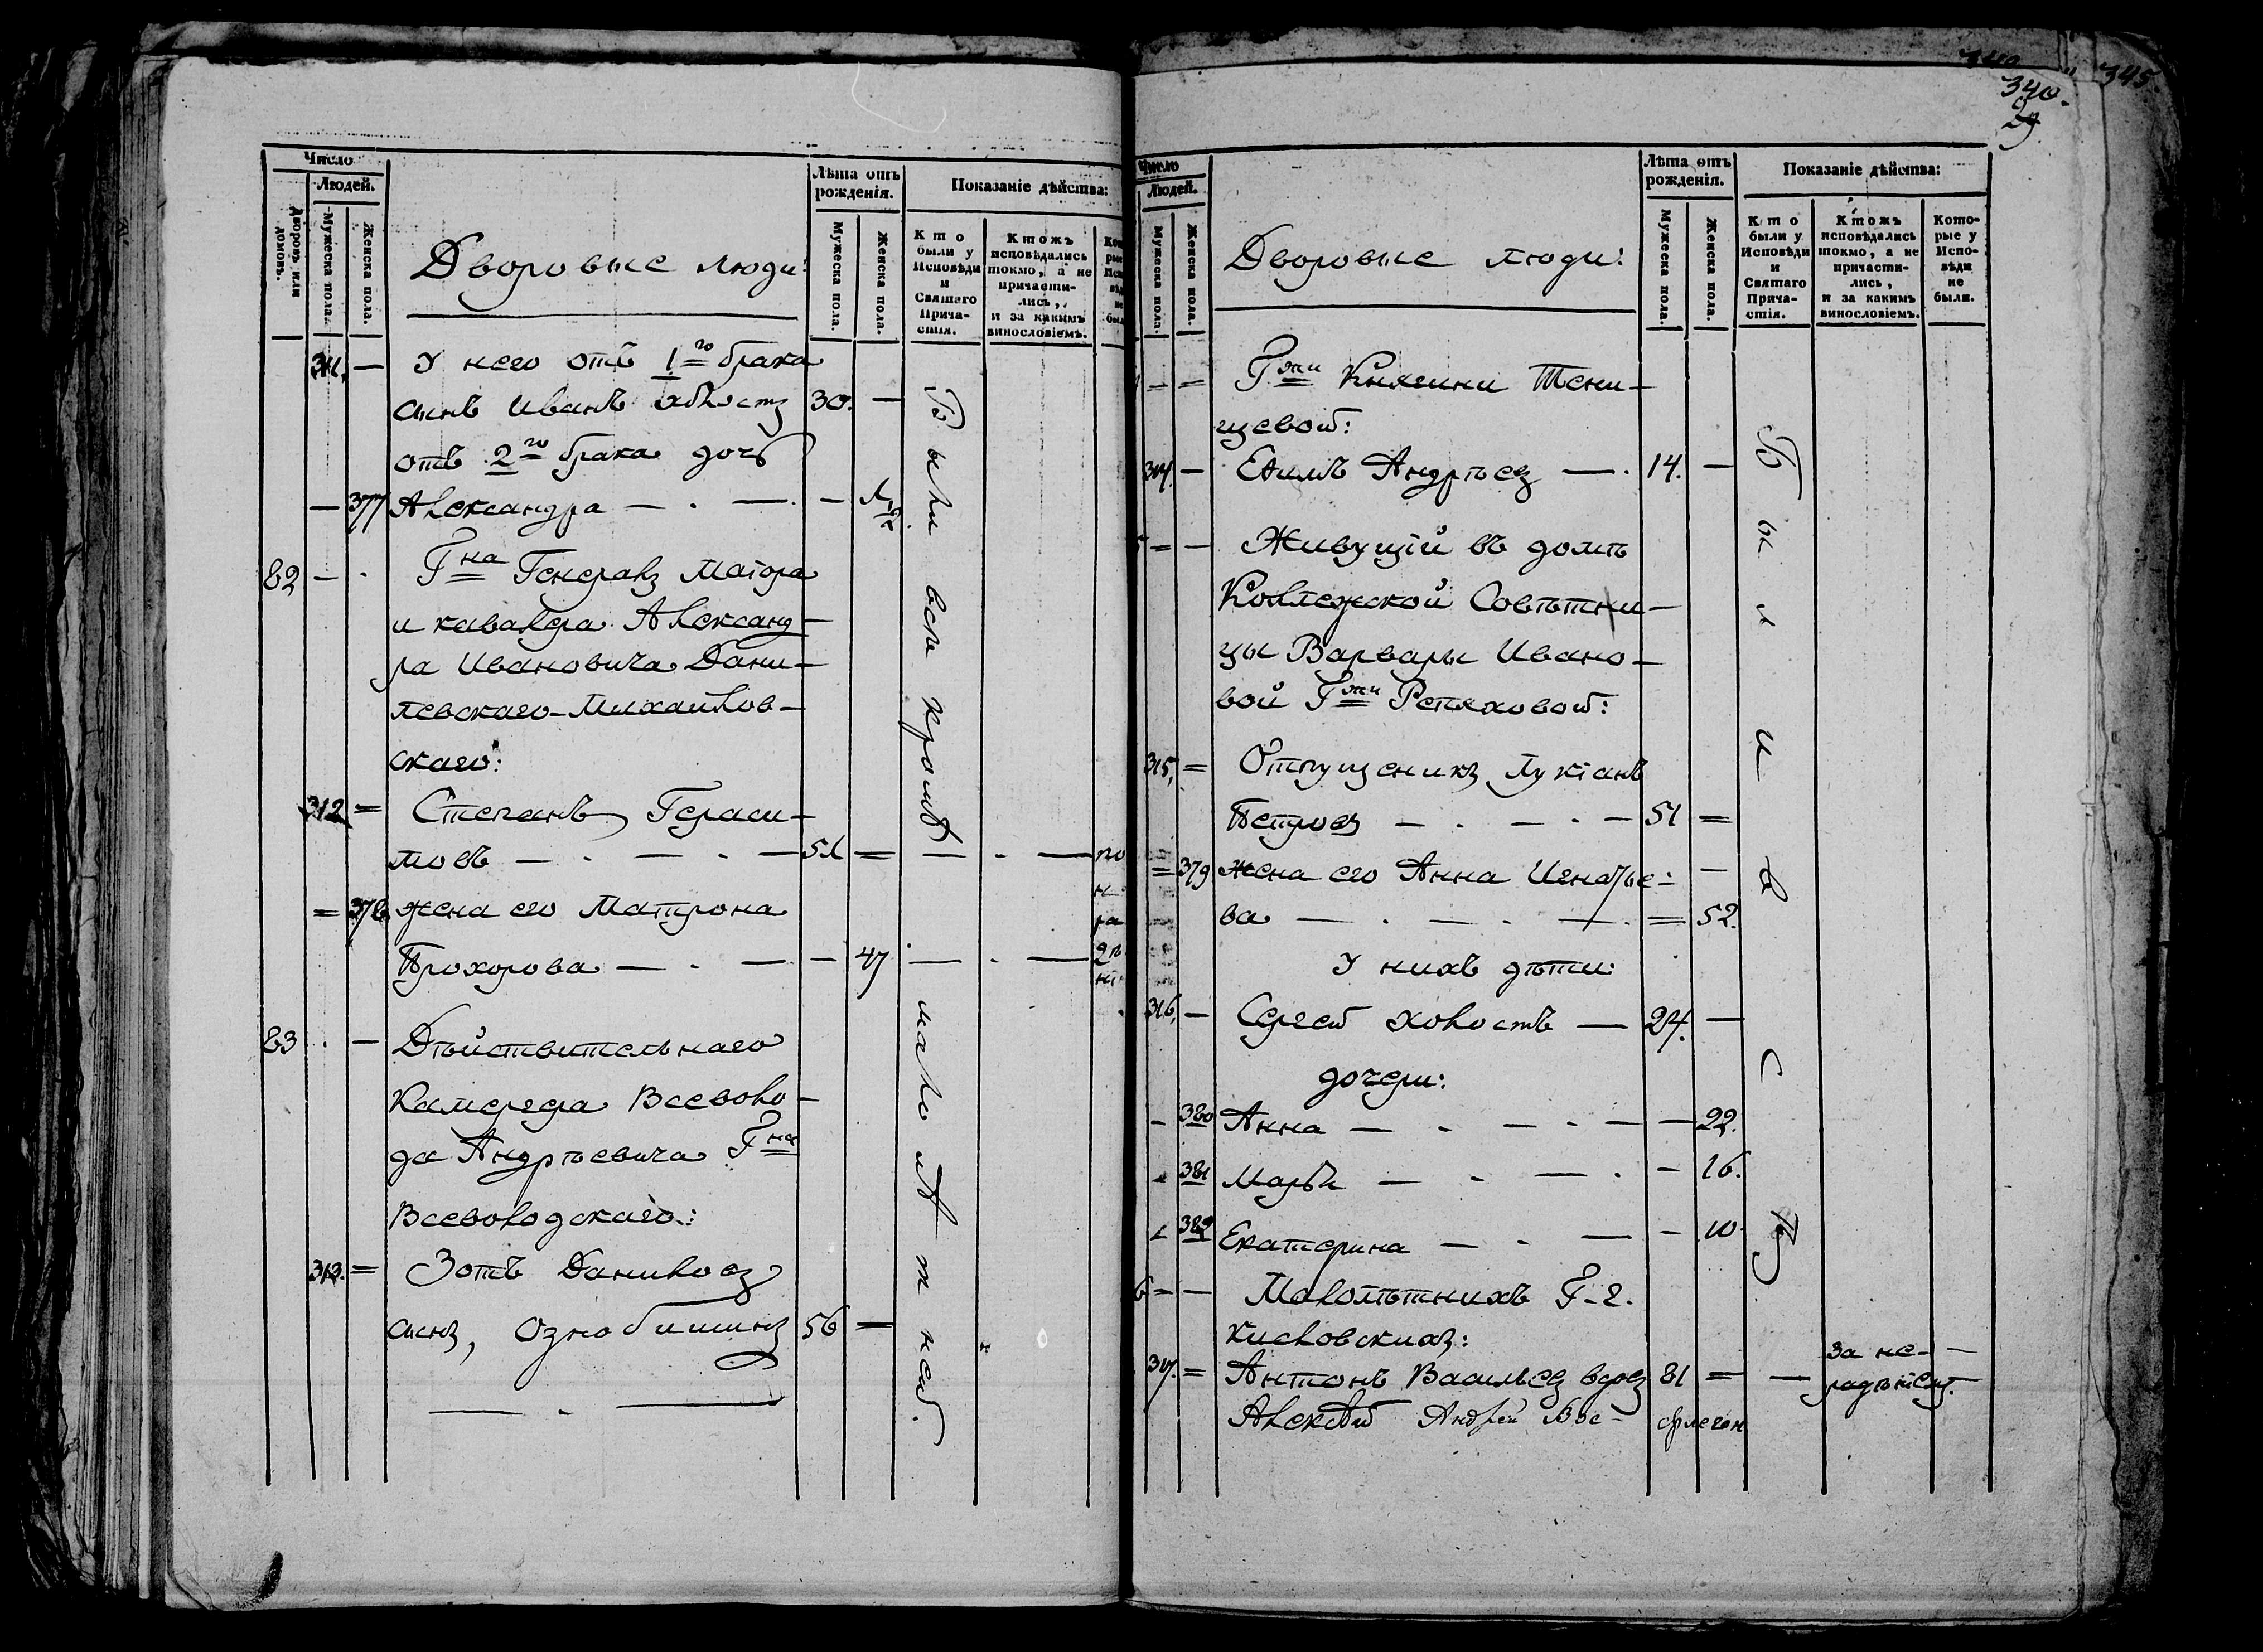 340.
345.
29
Число
Людей.
Дворовъ или домовъ.
Мужеска пола.
Женска пола.
Дворовые люди:
Лѣта отъ рожденія.
Мужеска пола.
Женска пола.
Показаніе дѣйства:
Кто были у Исповѣди и Святаго Причастія.
Ктожъ исповѣдались токмо, а не причастились, и за какимъ винословіемъ.
311. — У него отъ 1го брака
сынъ Иванъ холостъ 30. —
отъ 2го брака дочь
— 377 Александра — . — . —
82 — . Гна Генералъ Маіора
и кавалера Александ-
ра Ивановича Дани-
левскаго-Михайлов-
скаго:
312 = Степанъ Гераси-
мовъ — . — . — 51 = — . —
= 378 жена его Матрона
Прохорова — . — — 47 — . —
83 . — Дѣйствительнаго
Камергера Всеволо-
да Андрѣевича Гна
Всеволодскаго:
313. = Зотъ Даниловъ
сынъ, Ознобишинъ 56 =
— . —
Были всѣ кромѣ малолѣтней.
Число
Людей.
Мужеска пола.
Женска пола.
Дворовые люди:
Лѣта отъ рожденія.
Мужеска пола.
Женска пола.
Показаніе дѣйства:
Кто были у Исповѣди и Святаго Причастія.
Ктожъ исповѣдались токмо, а не причастились, и за какимъ винословіемъ.
Которые у Исповѣди не были.
— = Гжи Княгини Тени-
щевой:
314. — Андрѣевъ — . 14. —
= — Живущій въ домѣ
Коллежской Совѣтни-
цы Варвары Ивано-
вой Гжи Репяховой:
315, = Отпущеникъ Лукіанъ
Петровъ — . — . — 51 =
= 379 жена его Анна Игнатье- —
ва — . — . — = 52.
У нихъ дѣти:
316, — Сергей холостъ — 24. —
дочери:
- 380 Анна — . — . — — 22.
381 Марья — . — . — 16.
382 Екатерина — . — — 10.
= — Малолѣтнихъ Г-г.
Кисловскихъ:
317. = Антонъ Васильевъ вдовъ 81 = — за не-
радѣніемъ.
Алексѣй Андрей
Были всѣ